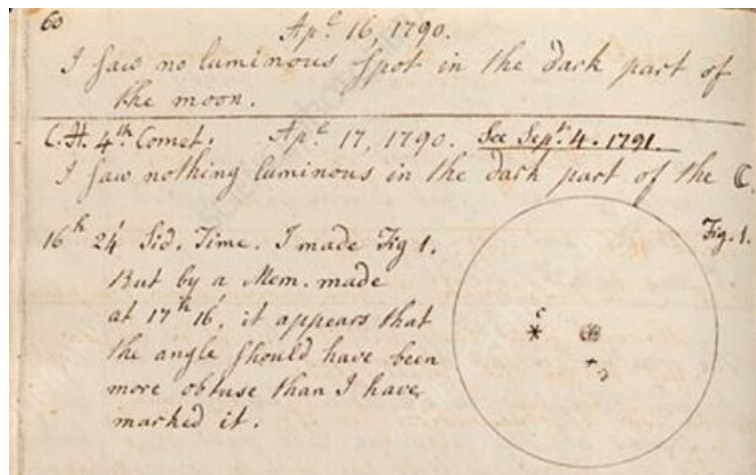 60
Apl. 16, 1790.
I saw no luminous spot in the dark part of
the moon.
C.H. 4th Comet. Apl. 17, 1790. See Sepr. 4. 1791.
I saw nothing luminous in the dark part of the ☾.
16h 24' Sid. Time. I made Fig 1. Fig. 1.
But by a Mem. made
at 17h 16', it appears that
the angle should have been
more obtuse than I have
marked it.
c